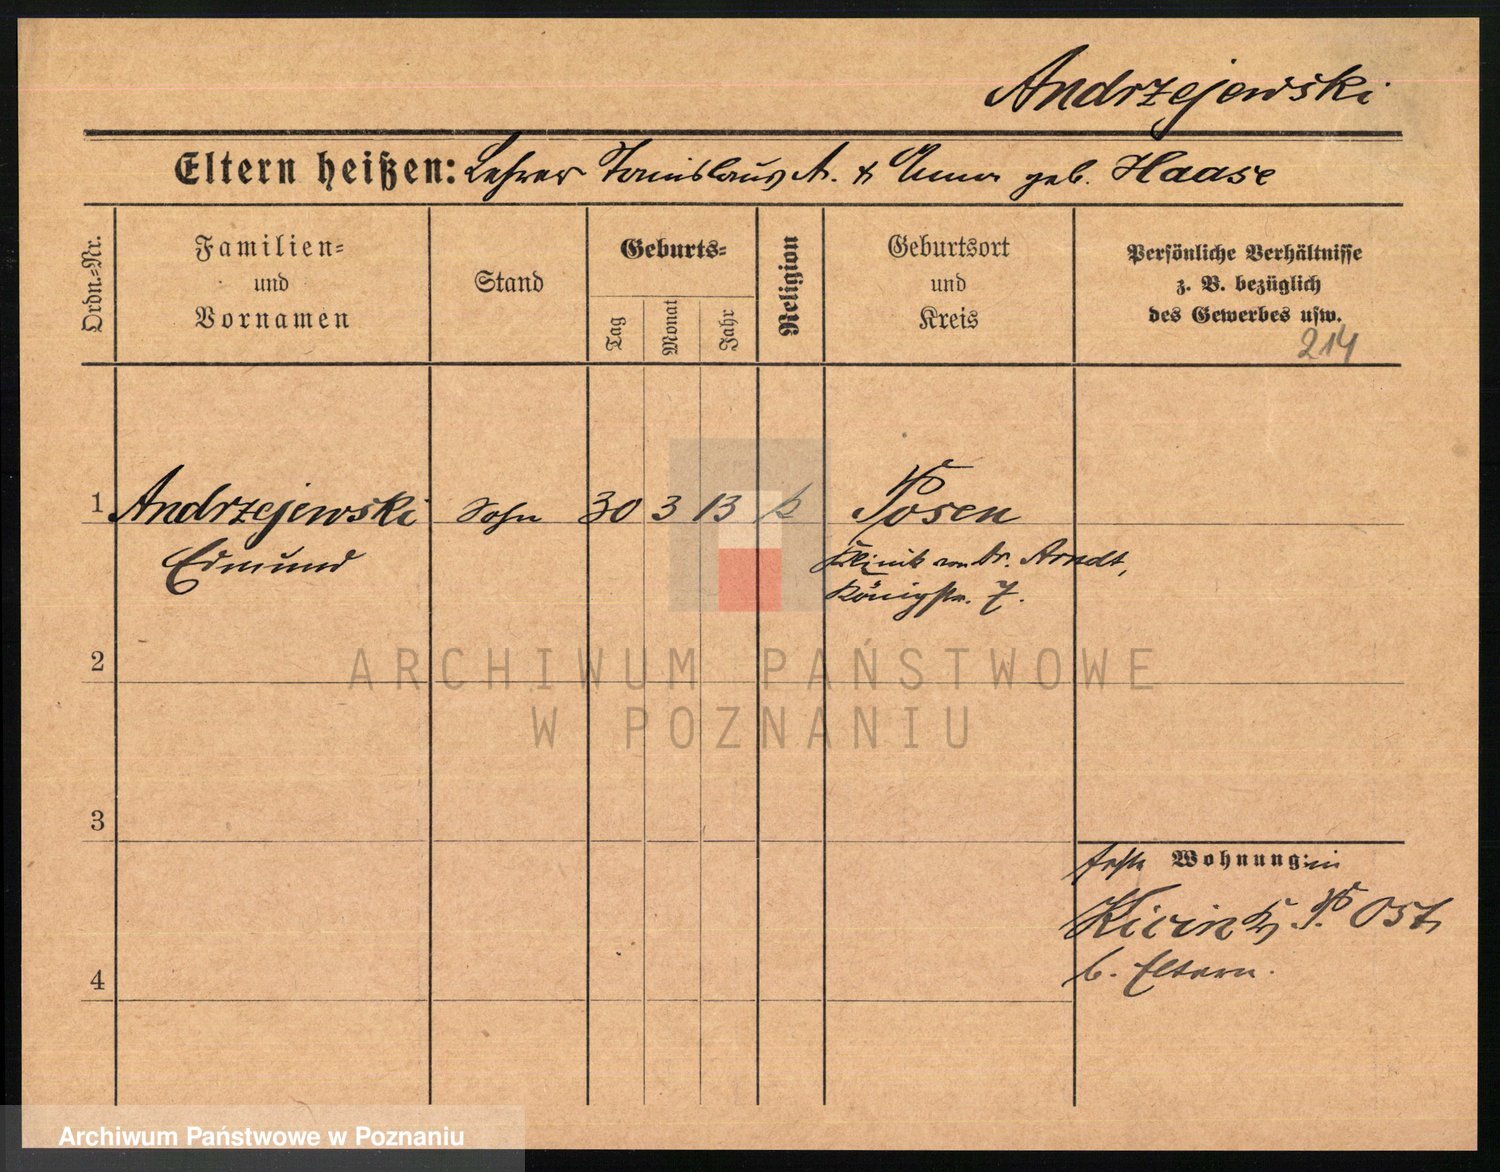 Andrzejewski
Eltern heißen: Lehrer Stanislaus A. & Emma geb. Haase
Ordn.-Nr.
Familien-
und
Vornamen
Stand
Geburts-
Tag
Monat
Jahr
Religion
Geburtsort
und
Kreis
Persönliche Verhältnisse
z. B. bezüglich
des Gewerbes usw.
214
1 Andrzejewski Sohn 30 3 13 k Posen
Edmund
Klinik von Dr. Arndt,
Königstr. 7.
2
ARCHIWUM PAŃSTWOWE
W POZNANIU
3
Wohnung: in
Ost
b. Eltern.
4
Archiwum Państwowe w Poznaniu